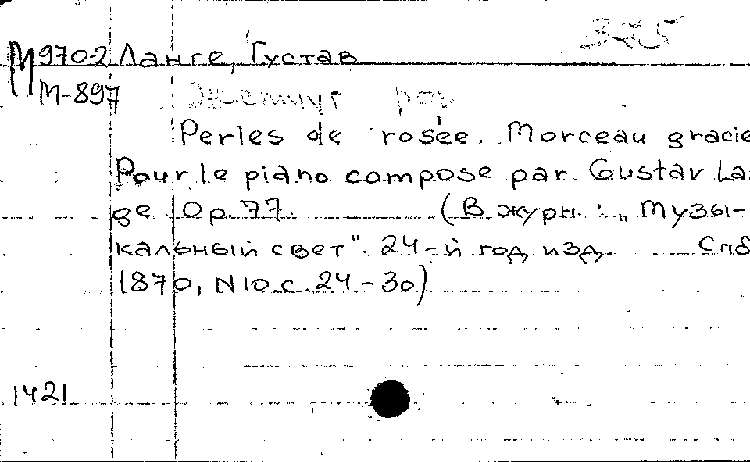 М970-2 Ланге, Густав
М-897
Perles de rosée. Morceau gracie
Pour le piano compose par Gustav La
ge Op. 77. (В журн.: „Музы-
кальный свет". 24-й год изд. Спб
1870, N10 с. 24-30)
1421